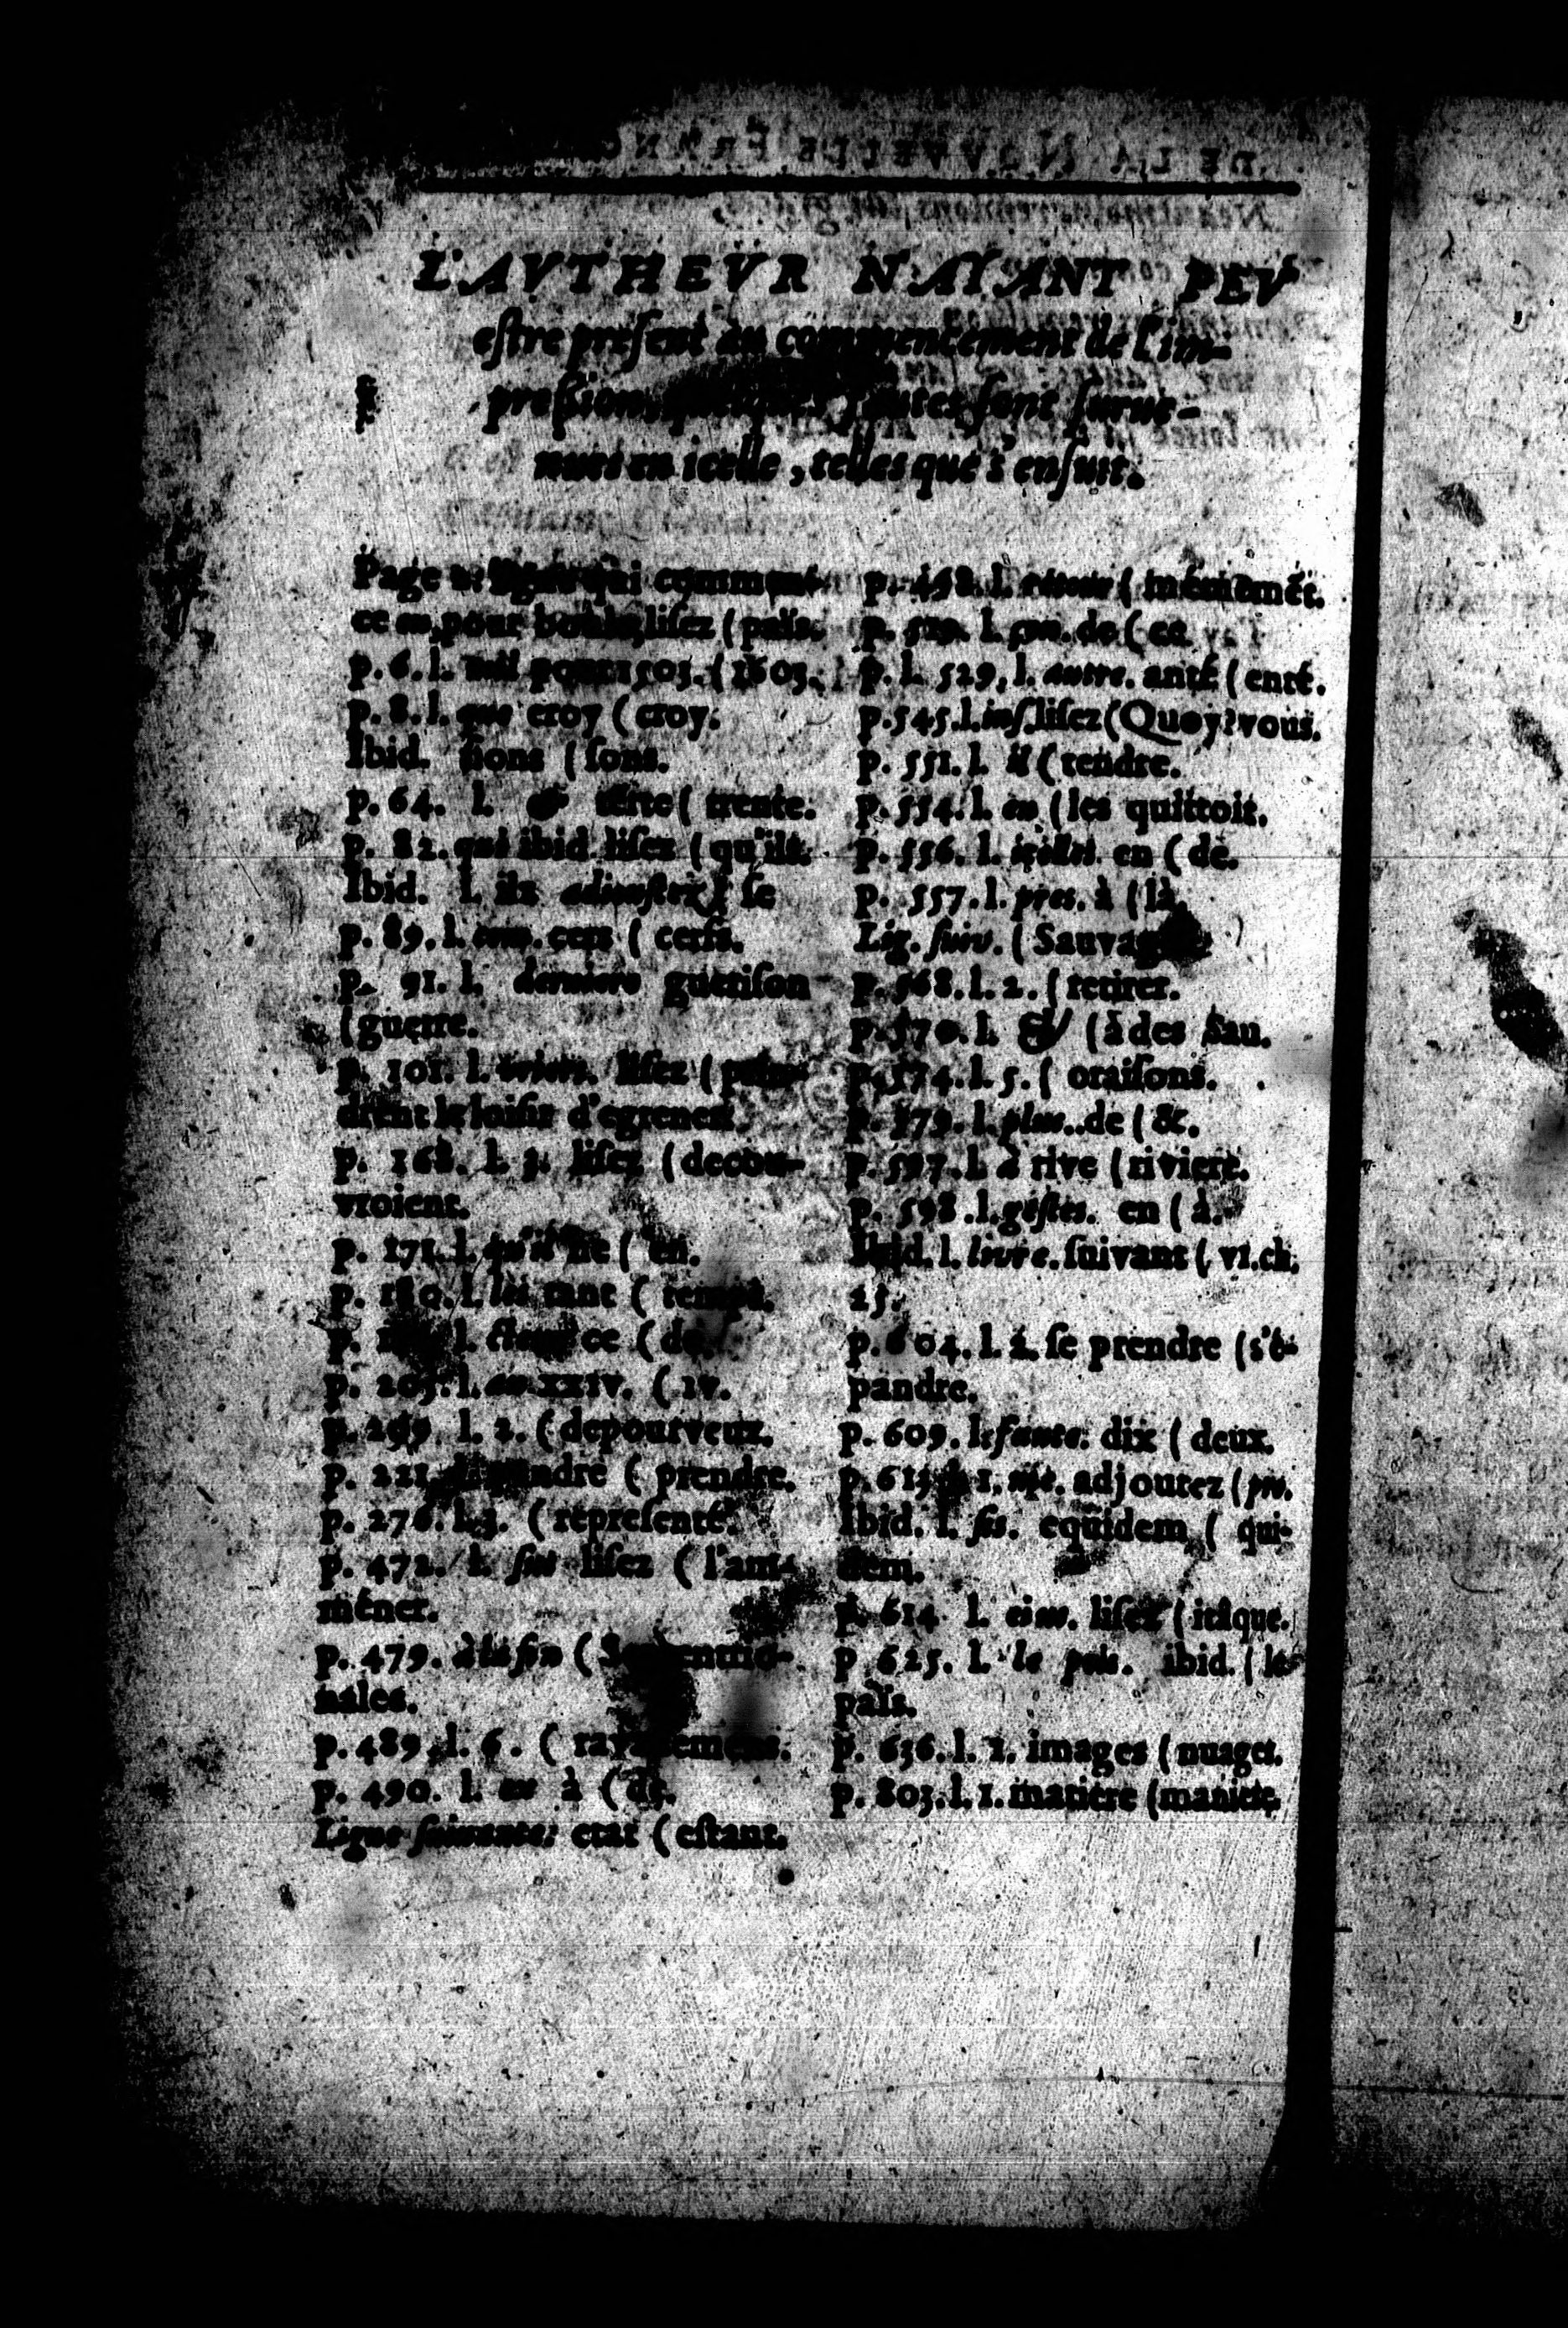 L'AVTHEVR N'AYANT PEV
eſtre preſent au commencement de l'im-
preſsion, quelques fautes ſont ſurve-
nues en icelle, telles que s'enſuit.
Page ligne qui commen-
ce pour liſez (païs.
p. 6. l. mil pour 1503. (1603.
p. 8. l. que croy (croy.
Ibid. ſions (ſons.
p. 64. l. & terre (trente.
p. 82. qui ibid. liſez (qu'ilz.
Ibid. l. ilz adjouſtez) ſe
p. 89. l. cers (cerfs.
p. 91. l. derniere gueriſon
(guerre.
p. 101. l. liſez (prin-
drent le loiſir d'egrener.
p. 168. l. 3. liſez (decou-
vroient.
p. 171. l. qu'il ne (en.
p. 180. l. les tant (temps.
p. l. ce (de.
p. 205. l. xxiv. (iv.
p. 209 l. 2. (depourveuz.
p. 221. (prendre.
p. 276. l. 3. (repreſenté.
p. 472. l. ſut liſez (l'am-
méner.
p. 479. à la fin (Septentrio-
nales.
p. 489. l. 6. (ravaſſemens.
p. 490. l. à (de.
Ligne ſuivante: etat (eſtant.
p. 498. l. (mémemét.
p. l. de (ce
p. l. 529. l. autre. anté (enté.
p. 545. l. inſ. liſez (Quoy? vous.
p. 551. l. il (rendre.
p. 554. l. en (les quittoit.
p. 556. l. icelles. en (de.
p. 557. l. pres. à (là.
Lig. ſuiv. (Sauvages
p. 568. l. 2. (retirer.
p. 570. l. & (à des Sau.
p. 574. l. 5. (oraiſons.
p. 579. l. plus. de (&.
p. 597. l. à rive (riviere.
p. 598. l. geſtes. en (à.
Ibid. l. livre. ſuivant (vi. ch.
23.
p. 604. l. 2. ſe prendre (s'é-
pandre.
p. 609. l. ſante. dix (deux.
p. 613. l. 1. adjoutez (pro.
Ibid. l. ſis. equidem (qui-
dem.
p. 614 l. liſez (itáque.
p. 625. l. le pois. ibid. (le
païs.
p. 636. l. 2. images (nuages.
p. 803. l. 1. matiere (maniere.